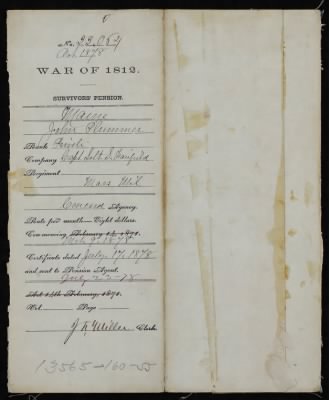 No. 23054
Oct. 1878
WAR OF 1812.
SURVIVORS' PENSION.
Maine
John Plummer
Rank Privt.
Company Capt Seth S. Fairfield
Regiment
Mass Mil.
Concord Agency.
Rate per month—Eight dollars.
Commencing February 14, 1871.
Mch 9" 1878
Certificate dated July 17, 1878
and sent to Pension Agent.
July 22-78
Act 14th February, 1871.
Vol. Page
Miller Clerk.
13565-160-55